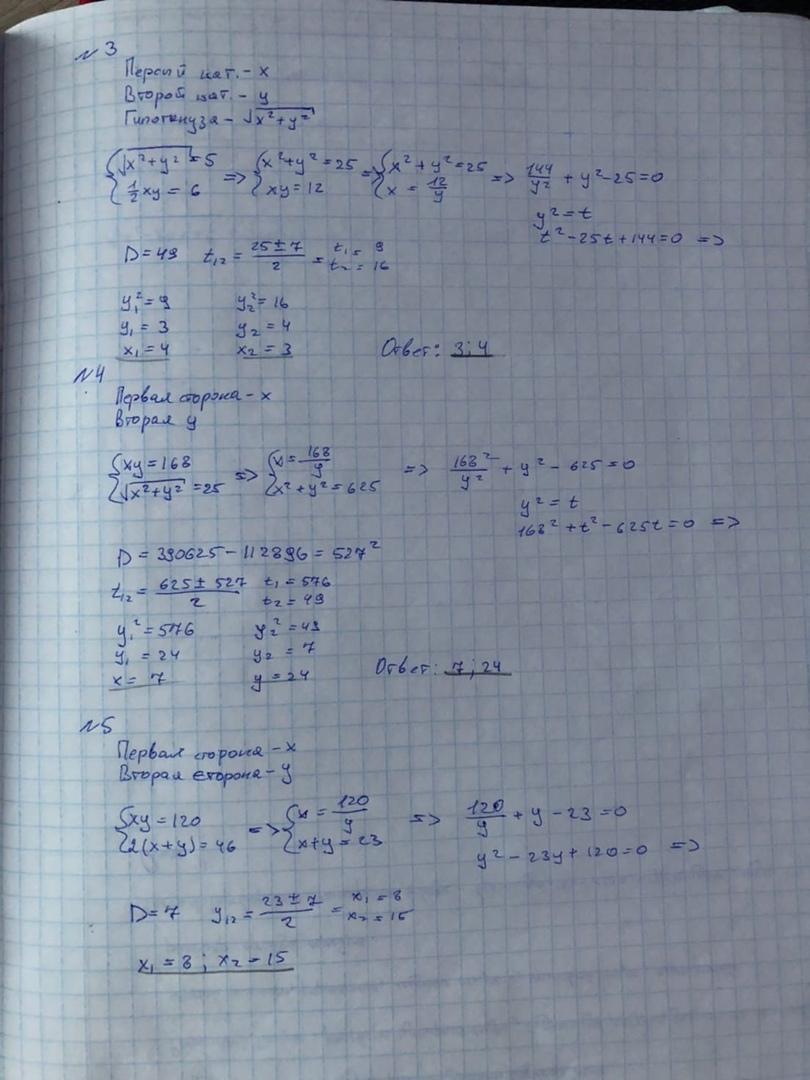 №3
Первый кат. - x
Второй кат. - y
Гипотенуза - √x²+y²
{√x²+y² = 5 => {x²+y² = 25 = {x²+y² = 25 => 144/y² + y² - 25 = 0
{1/2 xy = 6 {xy = 12 {x = 12/y
y² = t
t² - 25t + 144 = 0 =>
D = 49 t₁₂ = 25 ± 7 / 2 = t₁ = 9
t₂ = 16
y₁² = 9 y₂² = 16
y₁ = 3 y₂ = 4
x₁ = 4 x₂ = 3 Ответ: 3; 4
№4
Первая сторона - x
Вторая y
{xy = 168 => {x = 168/y => 168²/y² + y² - 625 = 0
{√x²+y² = 25 {x²+y² = 625
y² = t
168² + t² - 625t = 0 =>
D = 390625 - 112896 = 527²
t₁₂ = 625 ± 527 / 2 t₁ = 576
t₂ = 49
y₁² = 576 y₂² = 49
y₁ = 24 y₂ = 7
x = 7 y = 24 Ответ: 7; 24
№5
Первая сторона - x
Вторая сторона - y
{xy = 120 => {x = 120/y => 120/y + y - 23 = 0
{2(x+y) = 46 {x+y = 23
y² - 23y + 120 = 0 =>
D = 7 y₁₂ = 23 ± 7 / 2 = x₁ = 8
x₂ = 15
x₁ = 8; x₂ = 15